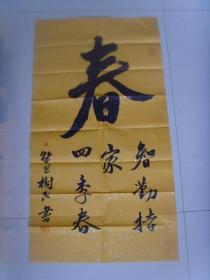 春
智勤持
家
四季春
癸巳樹民書